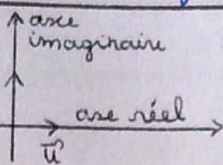 axe
imaginaire
axe réel
u